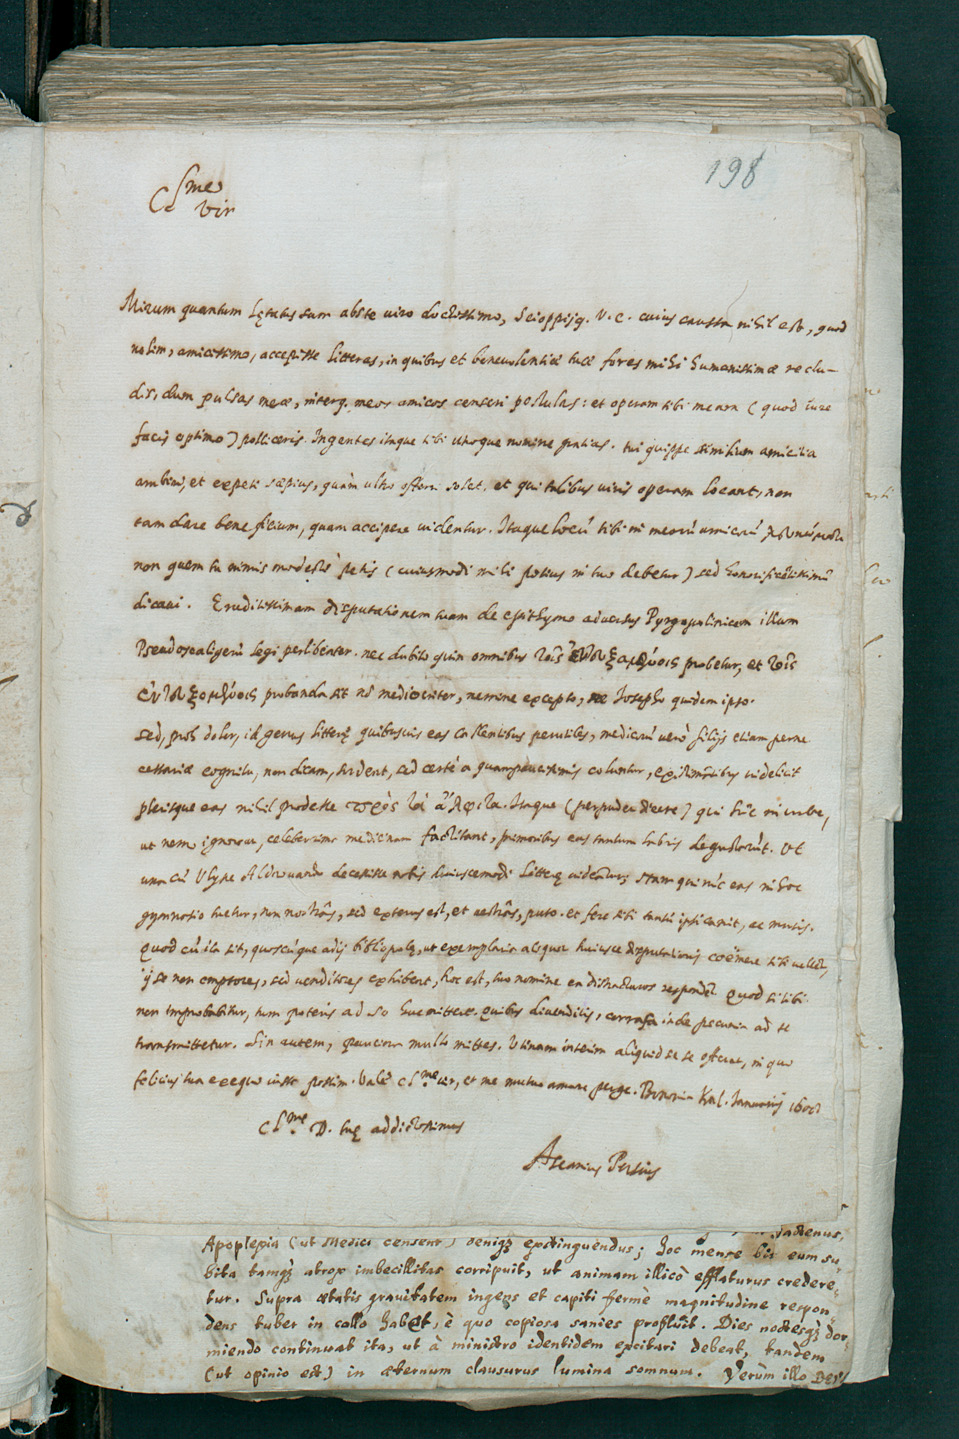 198
Cl.me
vir
Mirum quantum lętatus sum abs te viro doctissimo, Scioppijq. V. C. cuius caussa nihil est, quod
nolim, amicissimo, accepisse litteras, in quibus et beneuolentiæ tuæ fores mihi humanissimæ reclu-
dis, dum pulsas meæ, interq. meos amicos censeri postulas: et operam tibi meam (quod iure
facis optimo) polliceris. Ingentes itaque tibi utroque nomine gratias. tui quippe similium amicitia
ambiri, et expeti sæpius, quàm ultro offerri solet. et qui talibus viris operam locant, non
tam dare beneficium, quam accipere videntur. Itaque locũ tibi in meorũ amicorũ
non quem tu nimis modestè petis (cuiusmodi mihi potius in tuo debetur) sed honorificẽtissimũ
dicaui. Eruditissimam disputationem tuam de epithymo aduersus Pyrgopolinicem illum
Pseudoscaligerũ legi perlibenter. nec dubito quin omnibus τοῖς probetur, et τοῖς
probanda sit nõ mediocriter, nemine excepto, ne Josepho quidem ipso.
sed, proh dolor, id genus litterę quibusuis eas callentibus perutiles, medicorũ verò filijs etiam perne
cessariæ cognitu, non dicam, sordent, sed certè a quampaucissimis coluntur, existimãtibus videlicet
plerisque eas nihil prodesse πρὸς τὰ ἄλφιτα. Itaque (perpudet dicere) qui hîc in urbe,
ut nemo ignorat, celeberrimè medicinam factitant, primoribus eas tantum labris degustarũt. Ut
una cũ Ulysse Aldrouando decessisse nobis huiuscemodi litterę videãtur; nam qui nũc eas in hoc
gymnasio tuetur, non nostrâs, sed exterus est, et uestrâs, puto. et fere sibi tantũ ipsi canit, ac musis.
Quod cũ ita sit, quoscũque adij bibliopolę, ut exemplaria aliquot huiusce disputationis coëmere sibi uellẽt,
ij se non emptores, sed uenditores exhibent, hoc est, tuo nomine ea distracturos respondẽt. Quod si tibi
non improbabitur, tum poteris ad eo huc mittere. quibus diuenditis, corrasa inde pecunia ad te
transmittetur. Sin autem, pauciora multo mittes. Utinam interim aliquid se se offerat, in quo
felicius tua exequi iussa possim. Vale Cl.me vir, et me mutuo amare perge. Bononia Kal. Januarij
Cl.me D. tuę addictissimus
Ascanius Persius
hactenus,
Apoplexia (ut Medici censent) deniqꝫ exstinguendus; hoc mense bis eum su-
bita tamqꝫ atrox imbecillitas corripuit, ut animam illicò efflaturus credere-
tur. Supra ætatis grauitatem ingens et capiti fermè magnitudine respon-
dens tuber in collo habet, è quo copiosa sanies profluit. Dies noctesqꝫ dor-
miendo continuat ita, ut à ministro identidem excitari debeat, tandem
(ut opinio est) in æternum clausurus lumina somnum. Verùm illo